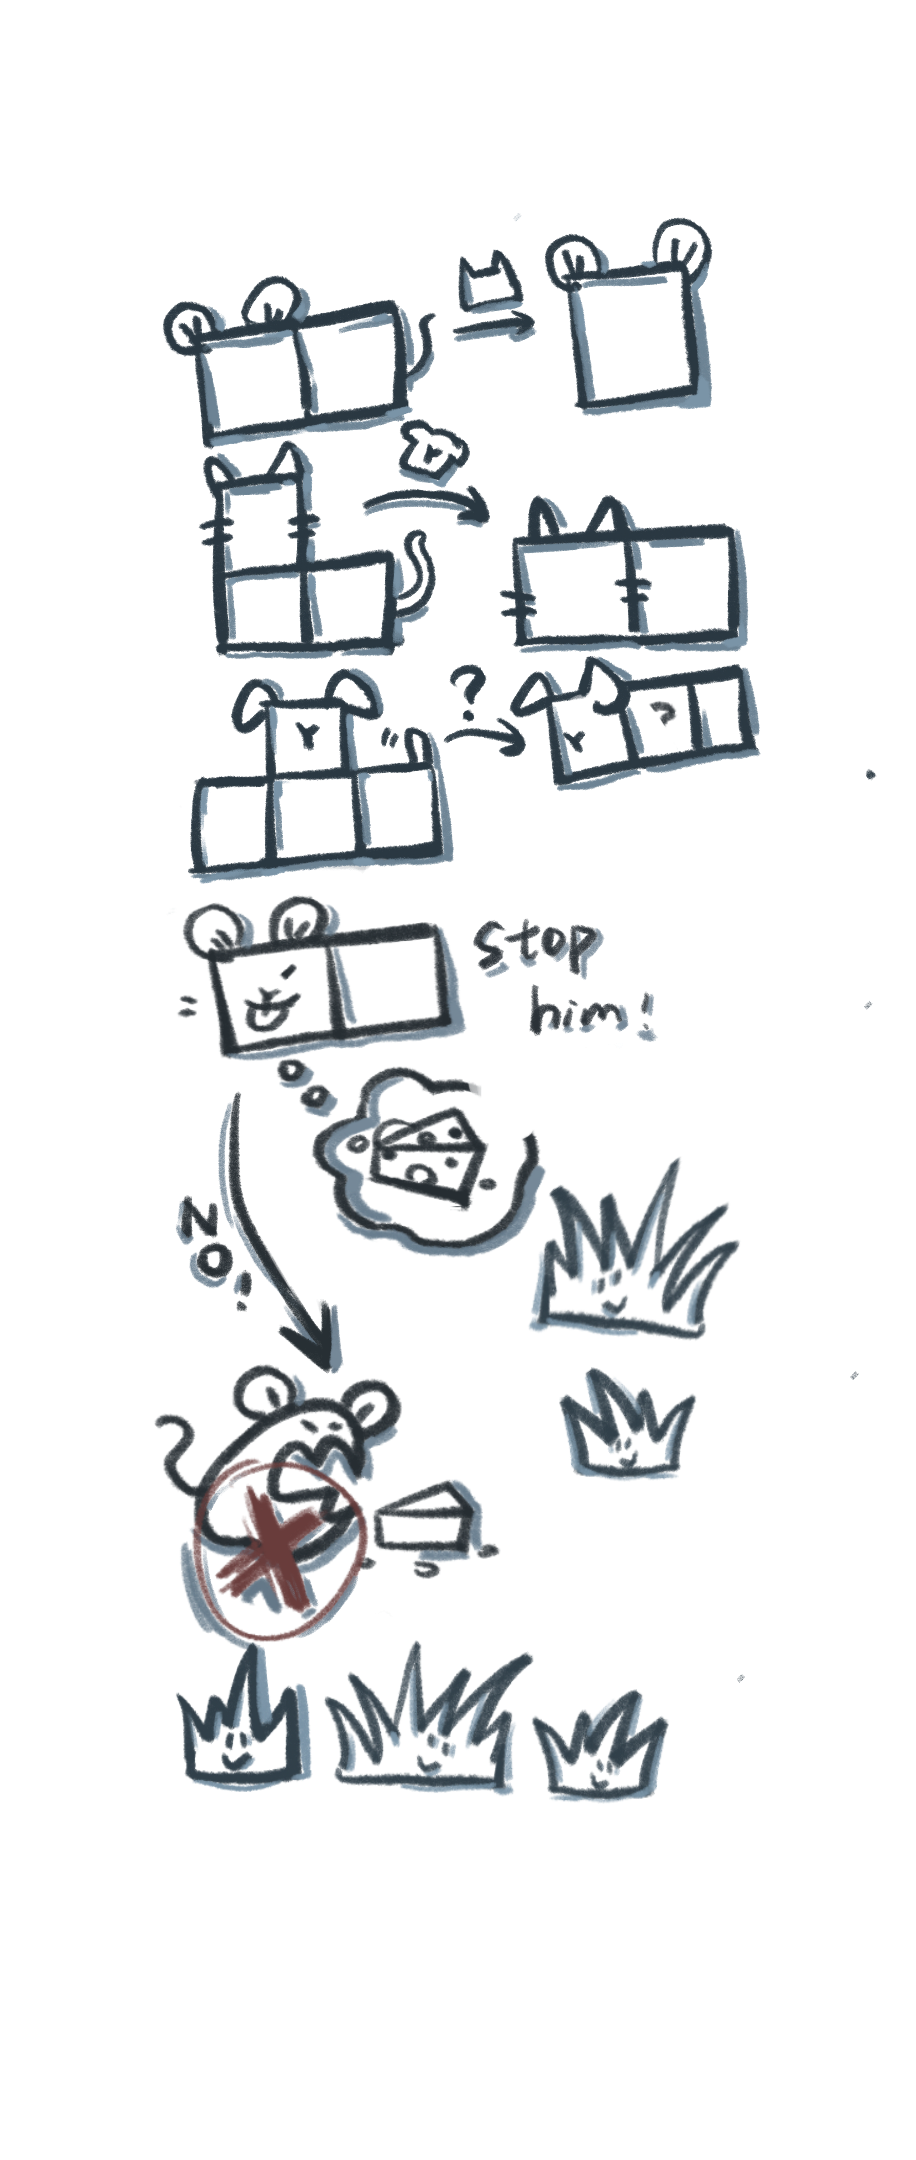 ?
stop
him!
NO!